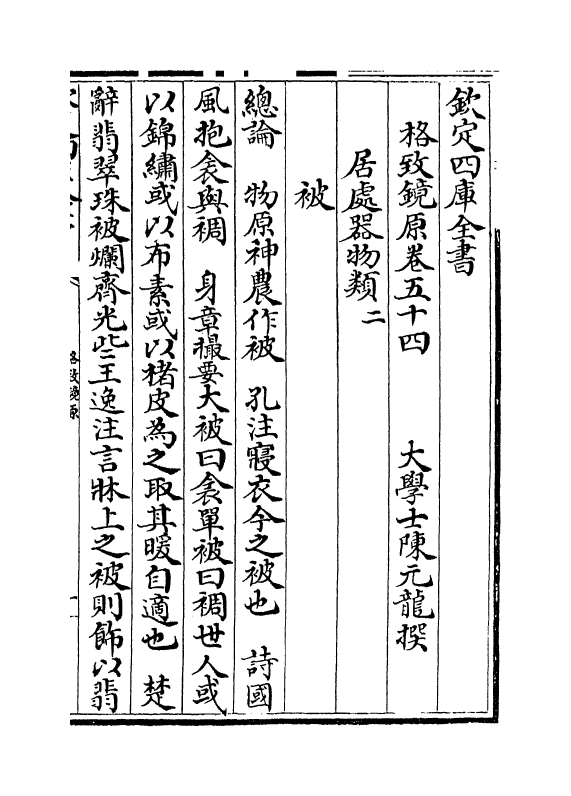 欽定四庫全書
格致鏡原卷五十四
大學士陳元龍撰
居處器物類二
被
總論　物原神農作被　孔注寢衣今之被也　詩國
風抱衾與裯　身章撮要大被曰衾單被曰裯世人或
以錦繡或以布素或以楮皮為之取其暖自適也　楚
辭翡翠珠被爛齊光些王逸注言牀上之被則飾以翡
格致鏡原
一